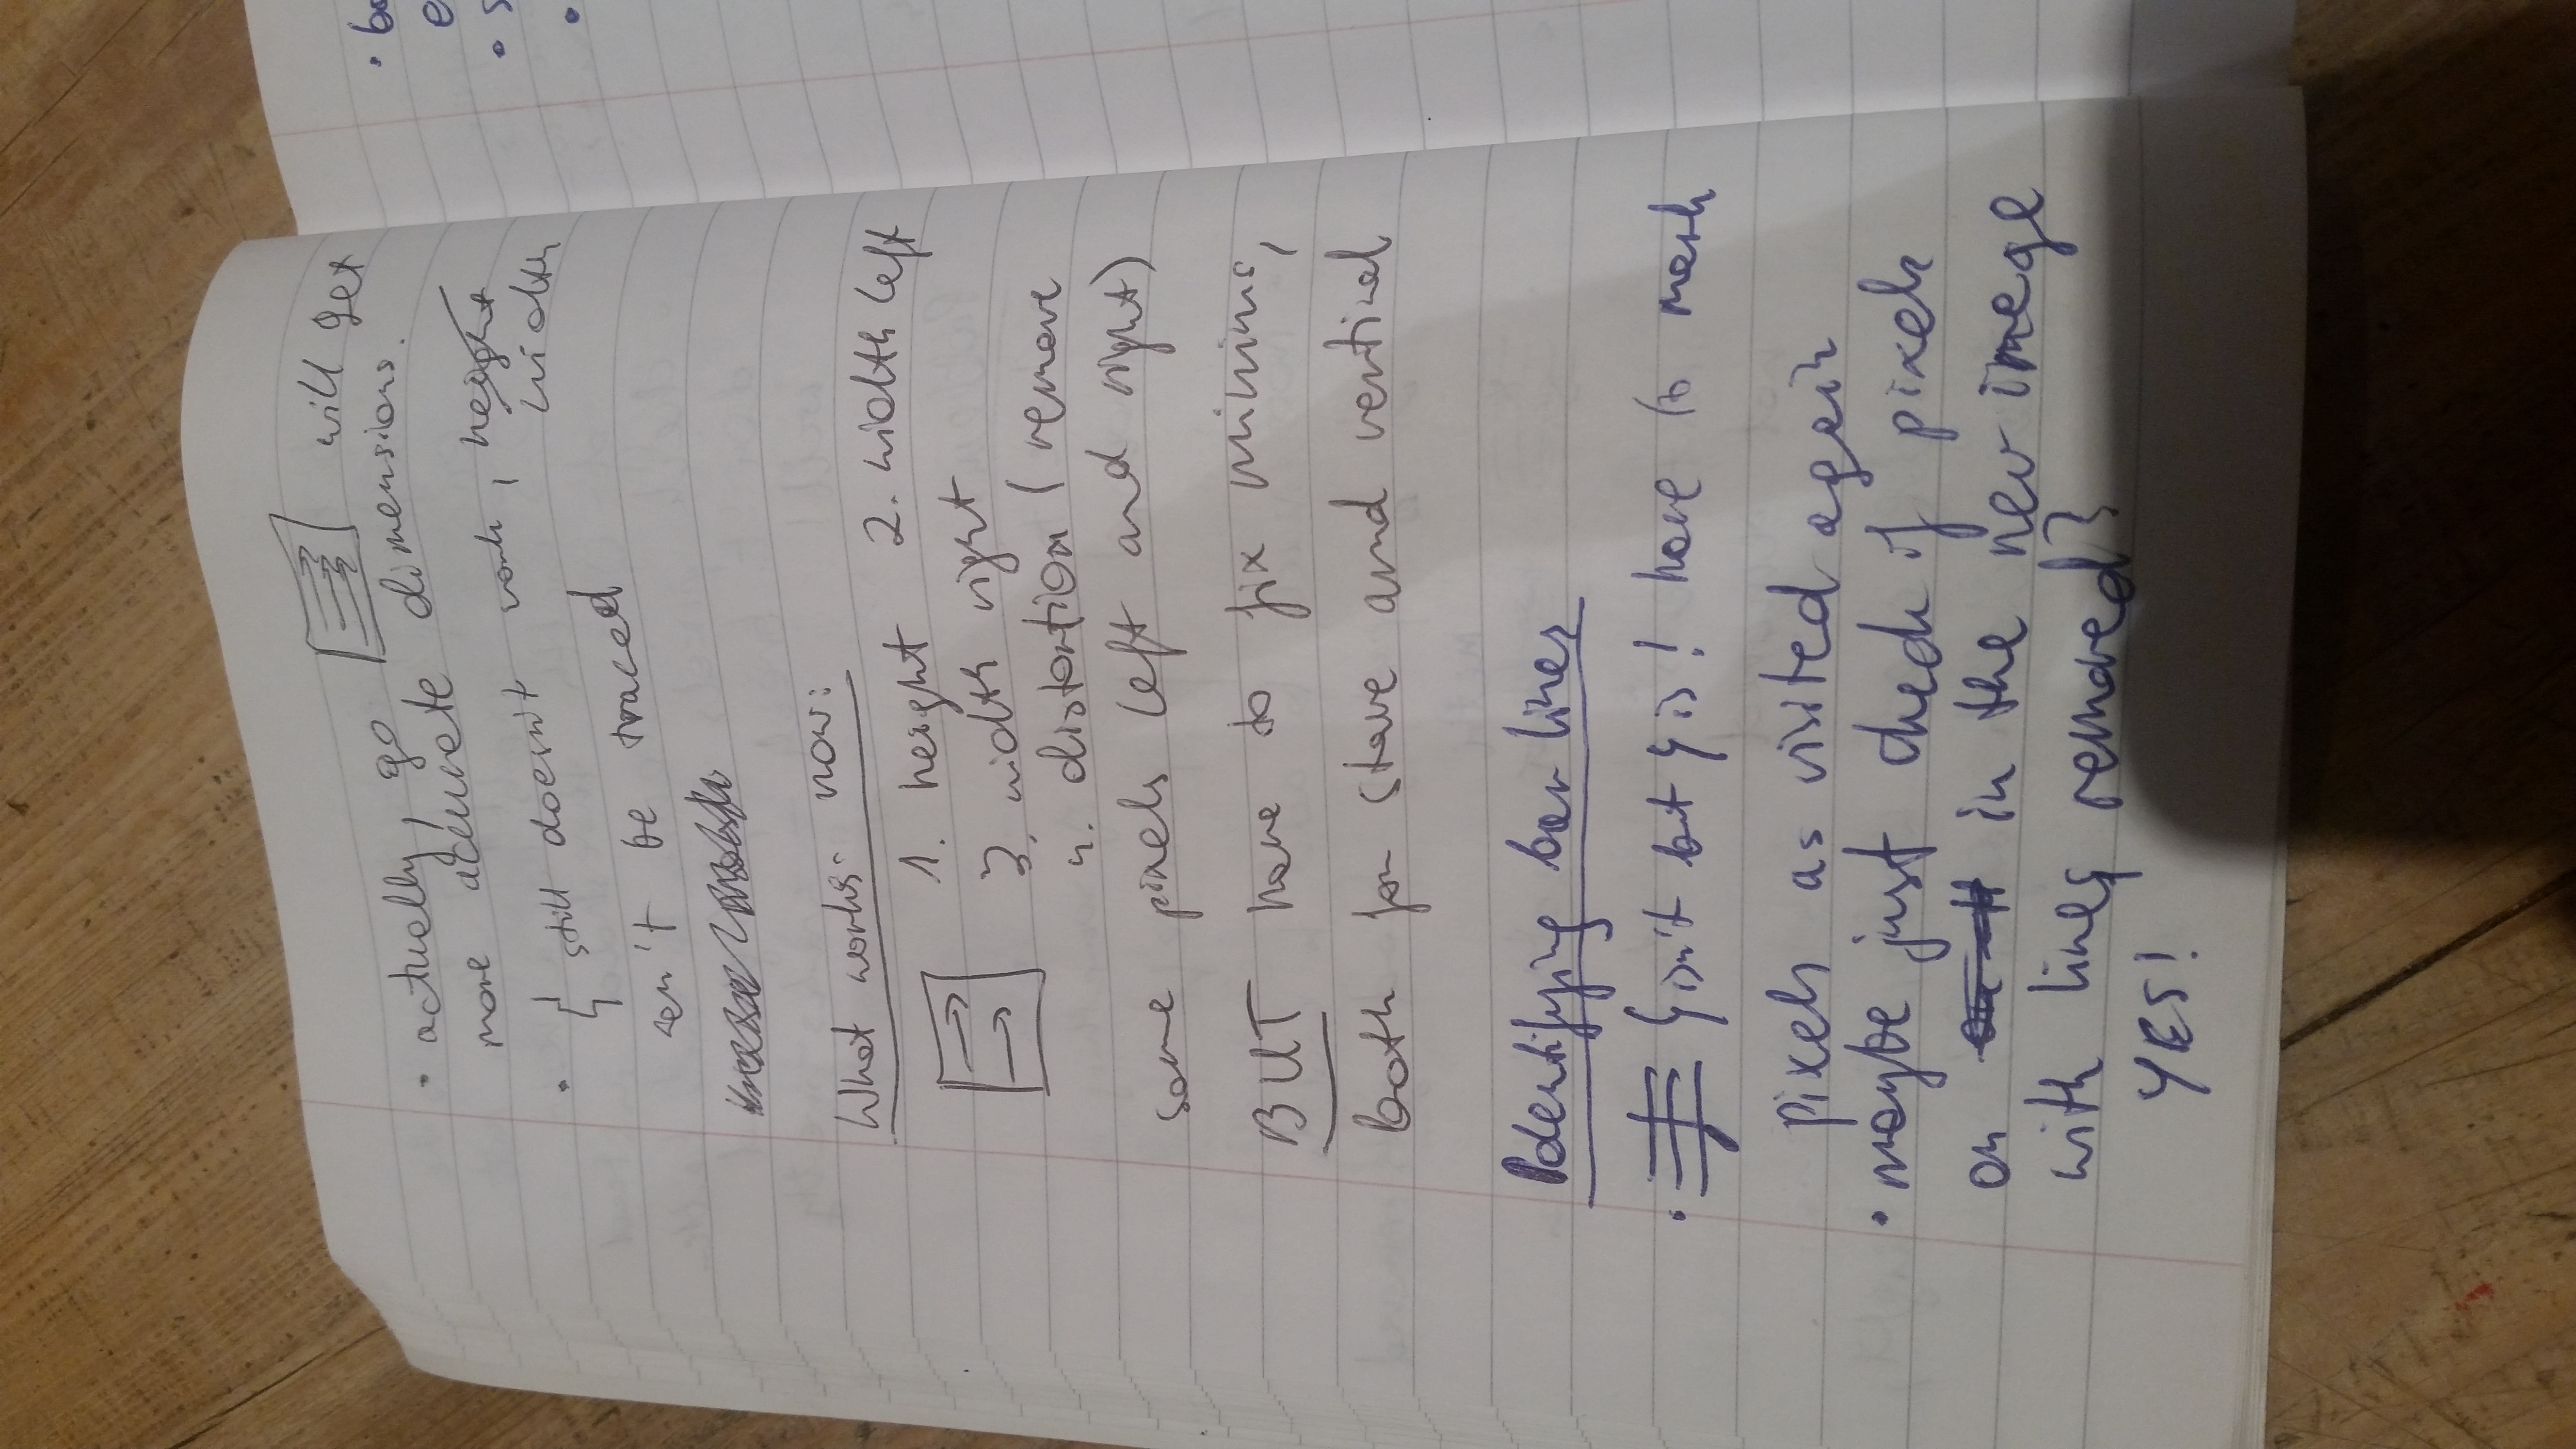 • actually, go will get
more accurate dimensions.
• still doesn't work, height
width
can't be traced
What works now:
1. height 2. width left
3. width right
4. distortion (remove
some pixels left and right)
BUT have to fix minims,
both for stave and vertical
Identifying bar lines
• isn't but is! have to mark
pixels as visited again
• maybe just check if pixels
on in the new image
with lines removed?
YES!
• 
e
• s
•